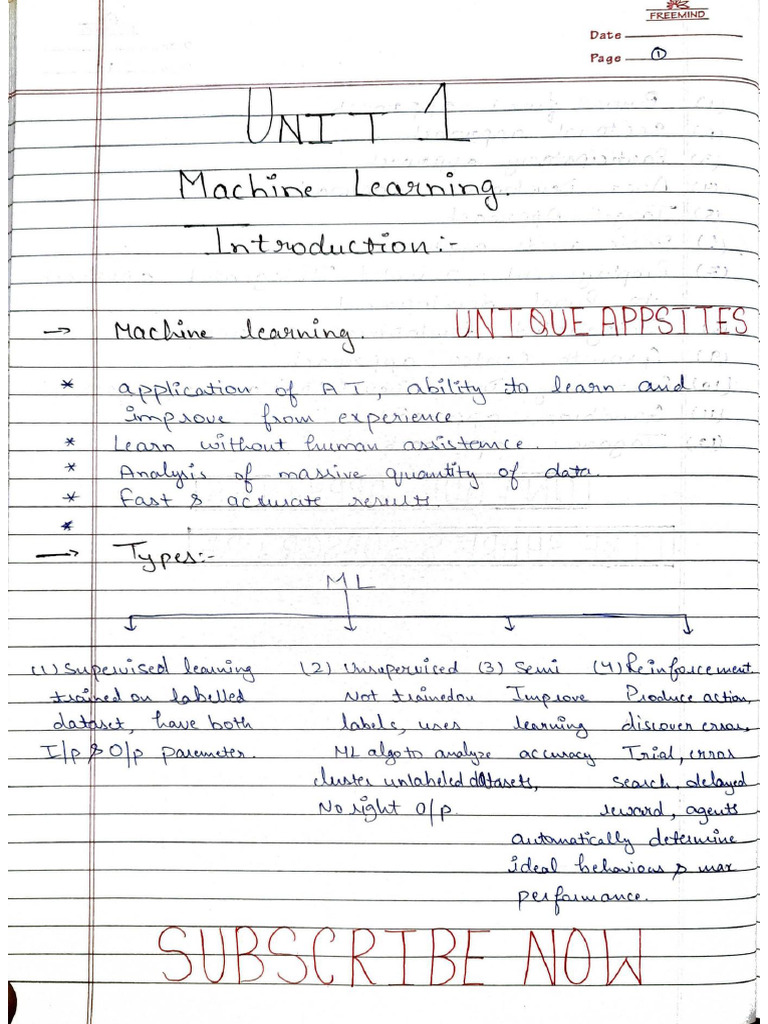 FREEMIND
Date
Page 1
UNIT 1
Machine Learning.
Introduction:-
→ Machine learning. UNIQUE APPSITES
* application of AI, ability to learn and
improve from experience.
* Learn without human assistence.
* Analysis of massive quantity of data.
* Fast & accurate results.
*
→ Types:-
ML
(1) Supervised learning (2) Unsupervised (3) Semi (4) Reinforcement.
trained on labelled Not trained on Improve Produce action,
dataset, have both labels, uses learning discover error,
I/p & O/p paremeter. ML algo to analyze accuracy Trial, error
cluster unlabeled datasets, search, delayed
No right O/p. reward, agents
automatically determine
ideal behaviour & max
performance.
SUBSCRIBE NOW